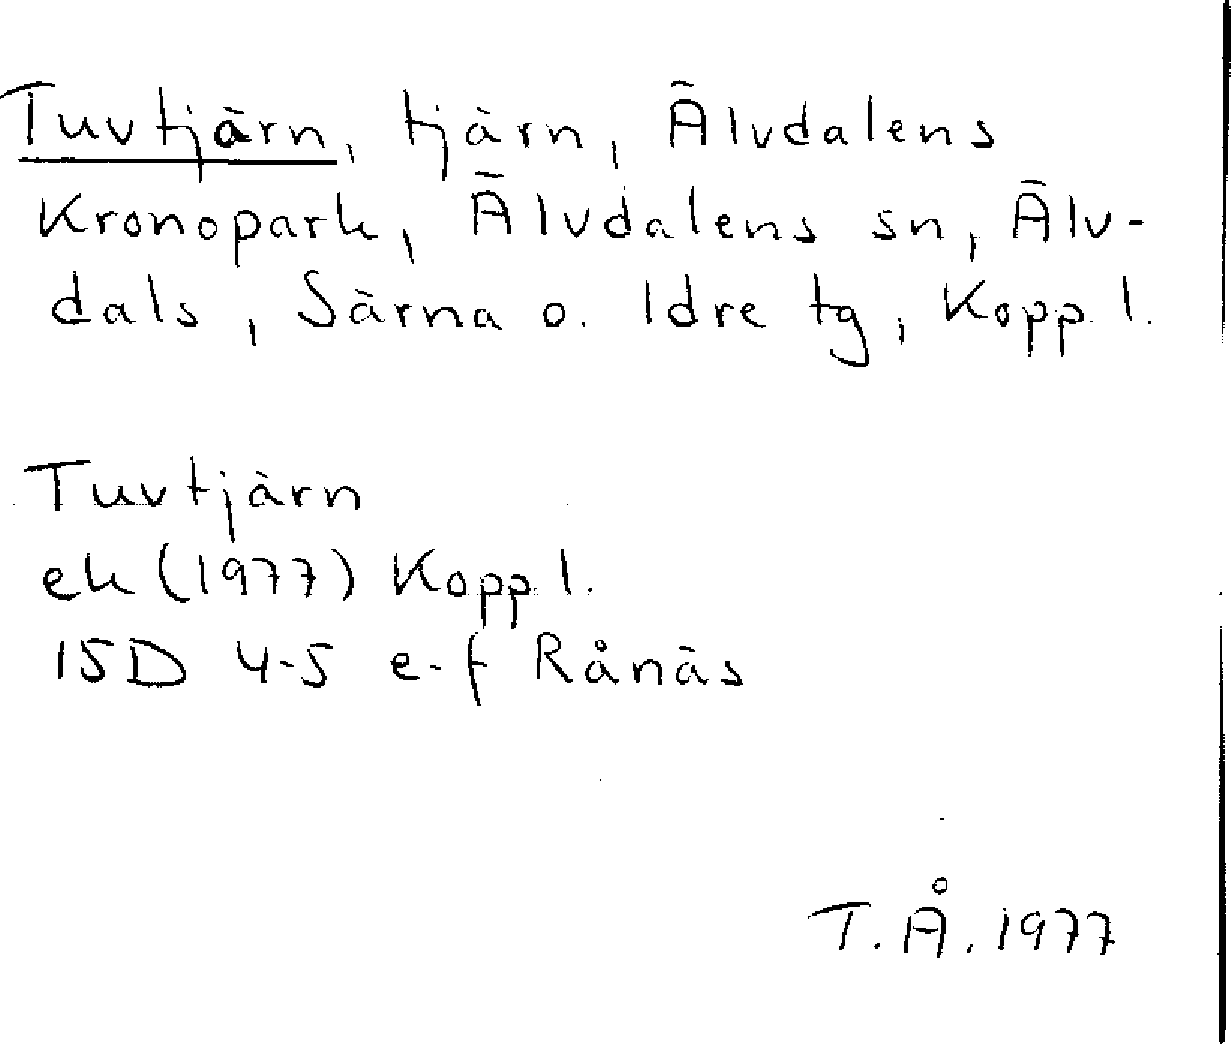 Tuvtjärn, tjärn, Älvdalens
Kronopark, Älvdalens sn, Älv-
dals, Särna o. Idre tg, Kopp. l.
Tuvtjärn
ek (1977) Kopp. l.
15D 4-5 e-f Rånäs
T.Å. 1977